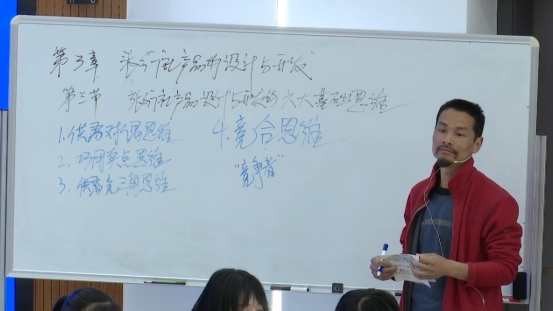 第3章 旅行社产品的设计与开发
第三节 旅行社产品设计与开发的六大基础思维
1.供需对偶思维 4.竞合思维
2.巧用卖点思维 "竞争者"
3.供需 思维